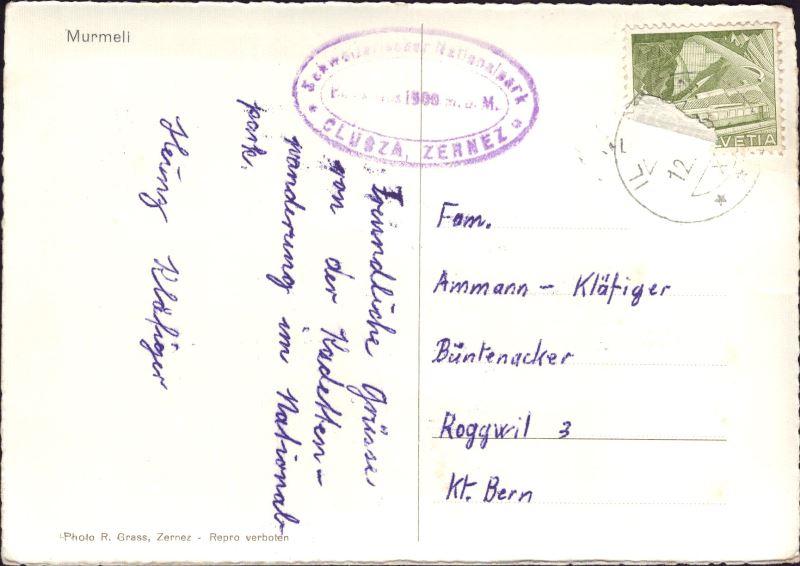 Murmeli
Schweizerischer Nationalpark
1900 m. ü. M.
CLUOZA, ZERNEZ
HELVETIA
12
Freundliche Grüsse
von der Kadetten-
wanderung im National-
park.
Heinz Kläfiger
Fam.
Ammann - Kläfiger
Büntenacker
Roggwil 3
Kt. Bern
Photo R. Grass, Zernez - Repro verboten